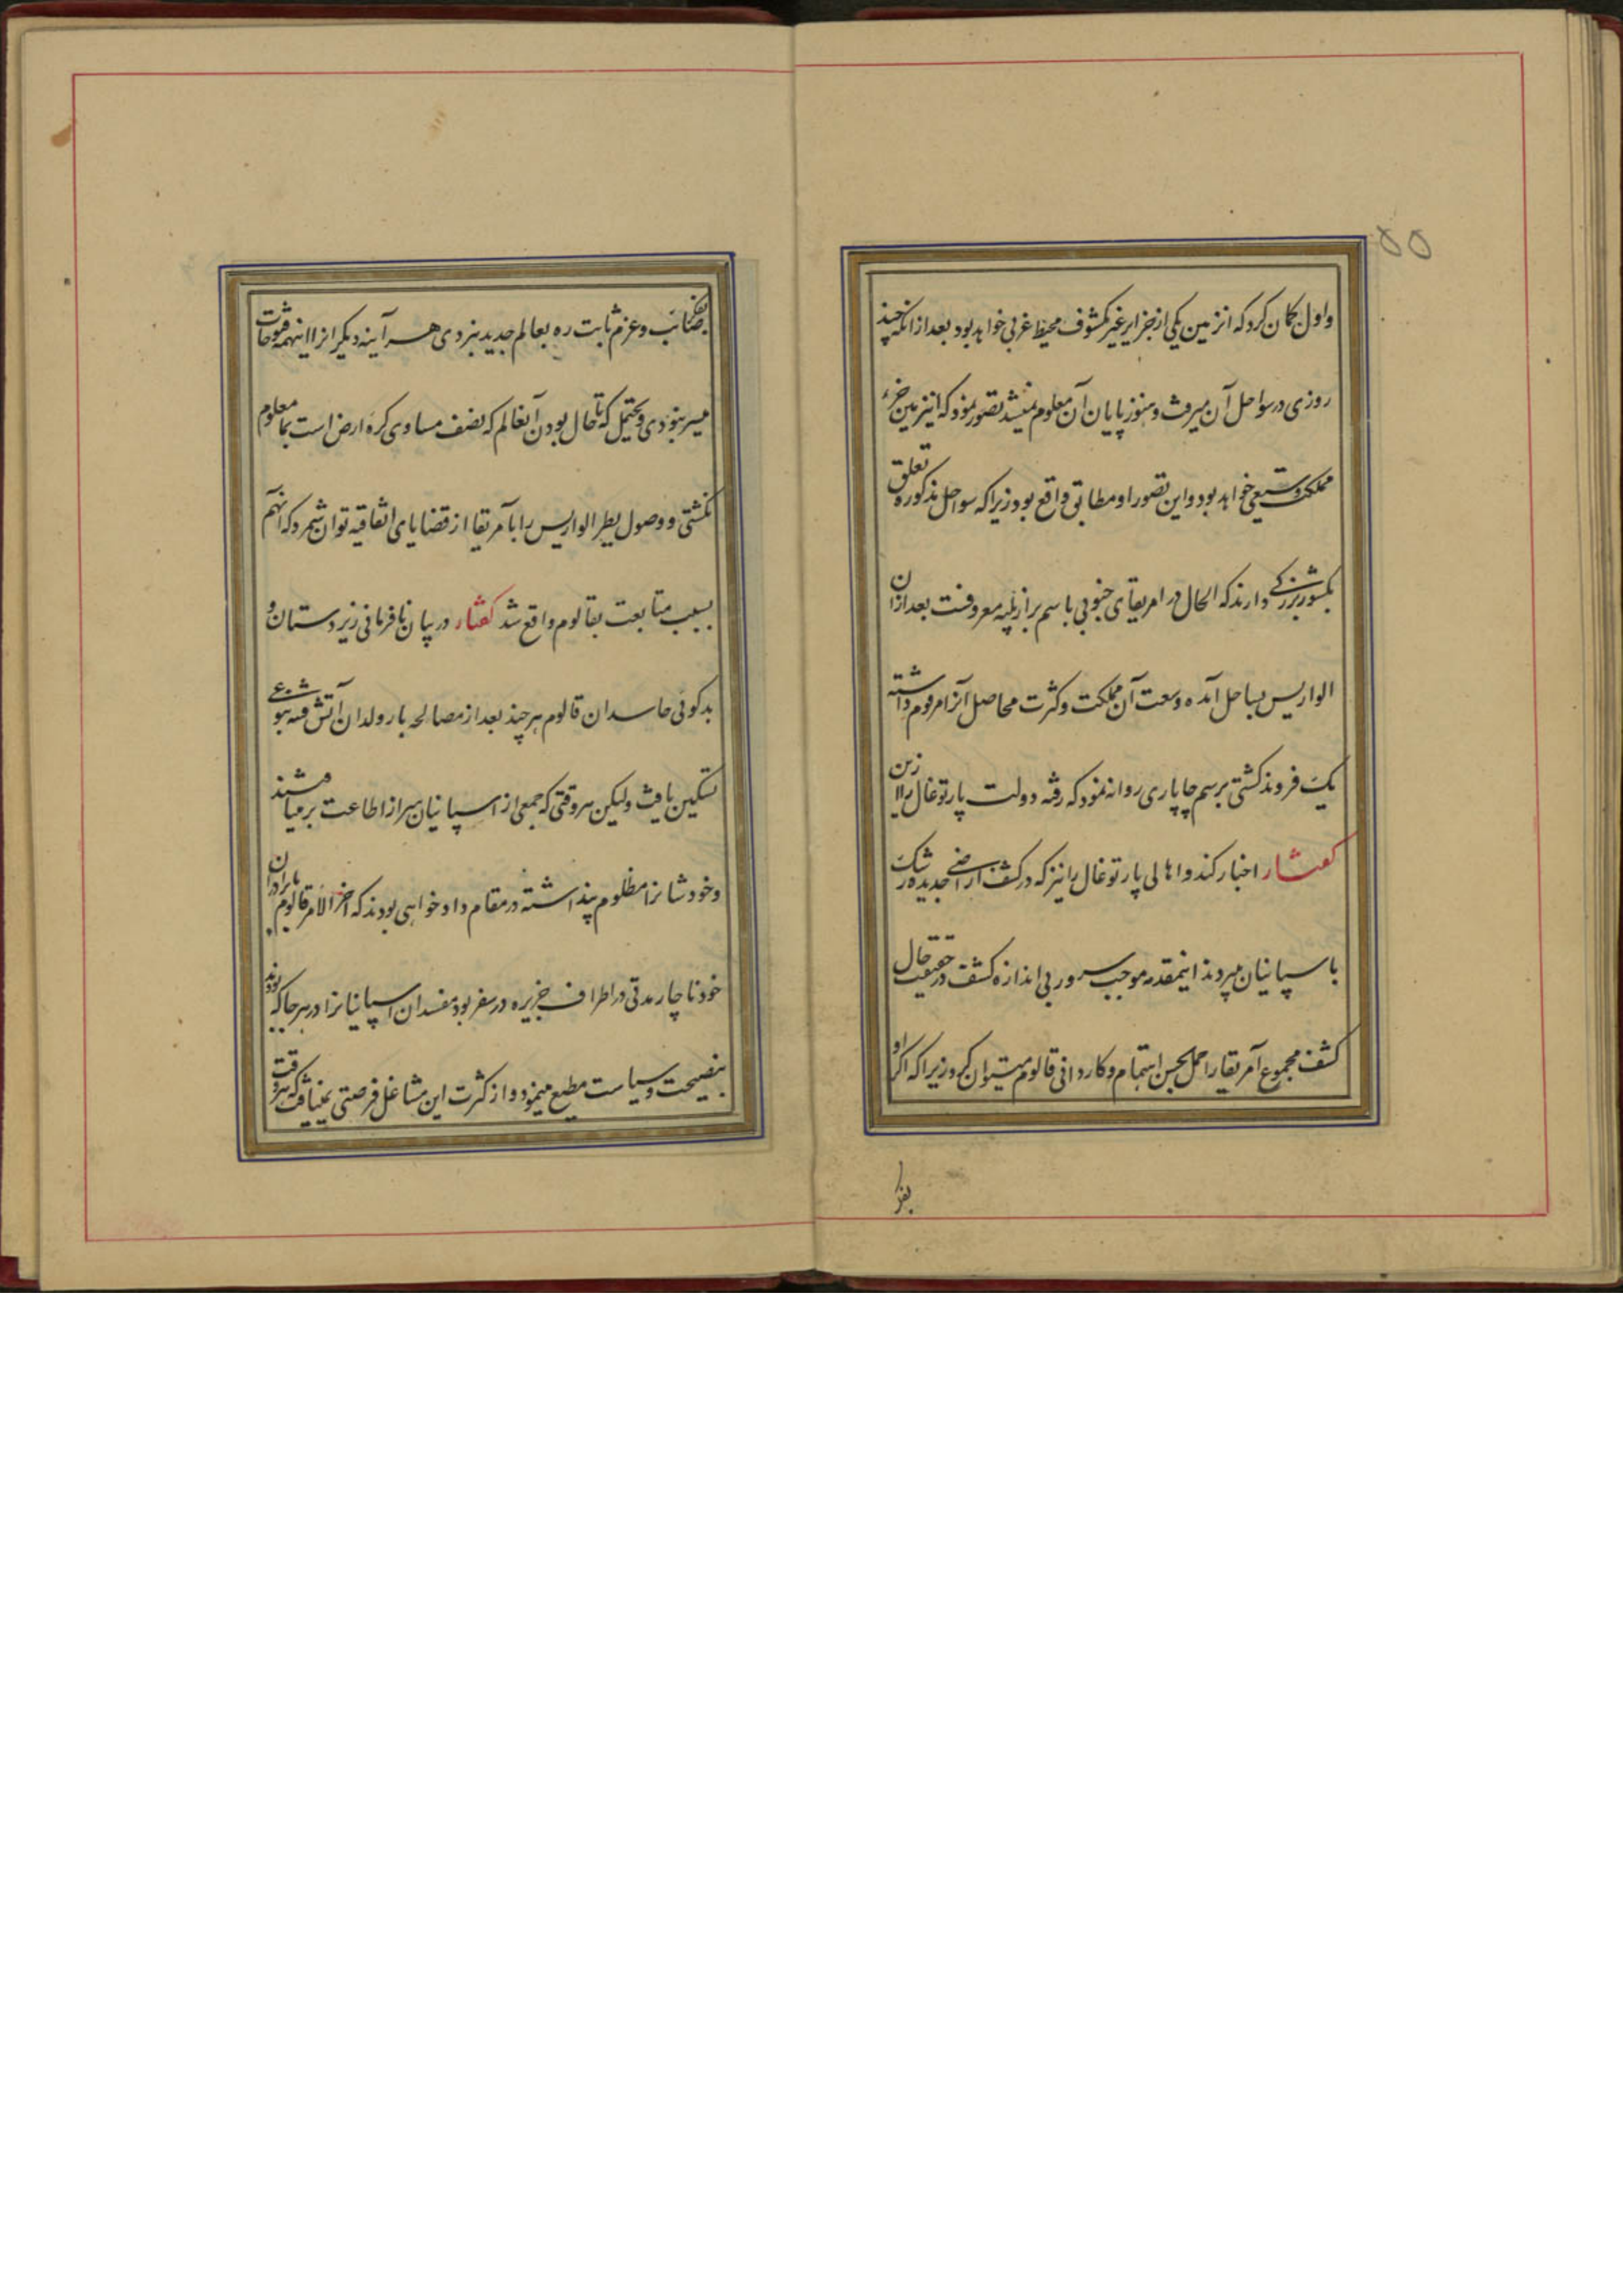 ۵۵
و اول گمان کرد که انزمین یکی از جزایر غیر مکشوف محیط غربی خواهد بود بعد از آنکه چند
روزی در سواحل آن میرفت و هنوز پایان آن معلوم نمیشد تصور نمود که اینزمین جزء
مملکت وسیعی خواهد بود و این تصور او مطابق واقع بود زیرا که سواحل مذکوره تعلق
بکشور بزرگی دارند که الحال در امریقای جنوبی باسم برازیلیه معروفست بعد ازان
الواریس بساحل آمده وسعت آن مملکت و کثرت محاصل آنرا مرقوم داشته
یک فروند کشتی برسم چاپاری روانه نمود که رفته دولت پارتوغال را ازین
گفتار اخبار کند و اهالی پارتوغال را نیز که در کشف اراضی جدیده رشک
باسپانیان میبردند اینمقدمه موجب سرور بی اندازه گشت در حقیقت حال
کشف مجموع آمریقا را حمل بحسن اهتمام و کاردانی قالوم میتوان کرد زیرا که اگر او
بفکر
بفکر صائب و عزم ثابت ره بعالم جدید نبردی هر آینه دیگرانرا اینهمه فتوحات
میسر نبودی و محتمل که تا حال بودن آنعالم که نصف مساوی کره ارض است بما معلوم
نگشتی و وصول پطر الواریس را بآمریقا از قضایای اتفاقیه توان شمرد که آنهم
بسبب متابعت بقالوم واقع شد گفتار در بیان نافرمانی زیردستان و
بدگوئی حاسدان قالوم هر چند بعد از مصالحه با رولدان آتش فتنه بنوعی
تسکین یافت ولیکن هر وقتی که جمعی از اسپانیان سر از اطاعت بر میداشتند
و خودشانرا مظلوم پنداشته در مقام دادخواهی بودند که آخر الامر قالوم با برادران
خود ناچار مدتی در اطراف جزیره در سفر بود مفسدان اسپانیانرا در هر جا که بودند
بنصیحت و سیاست مطیع مینمود و از کثرت این مشاغل فرصتی نمییافت که هر وقت